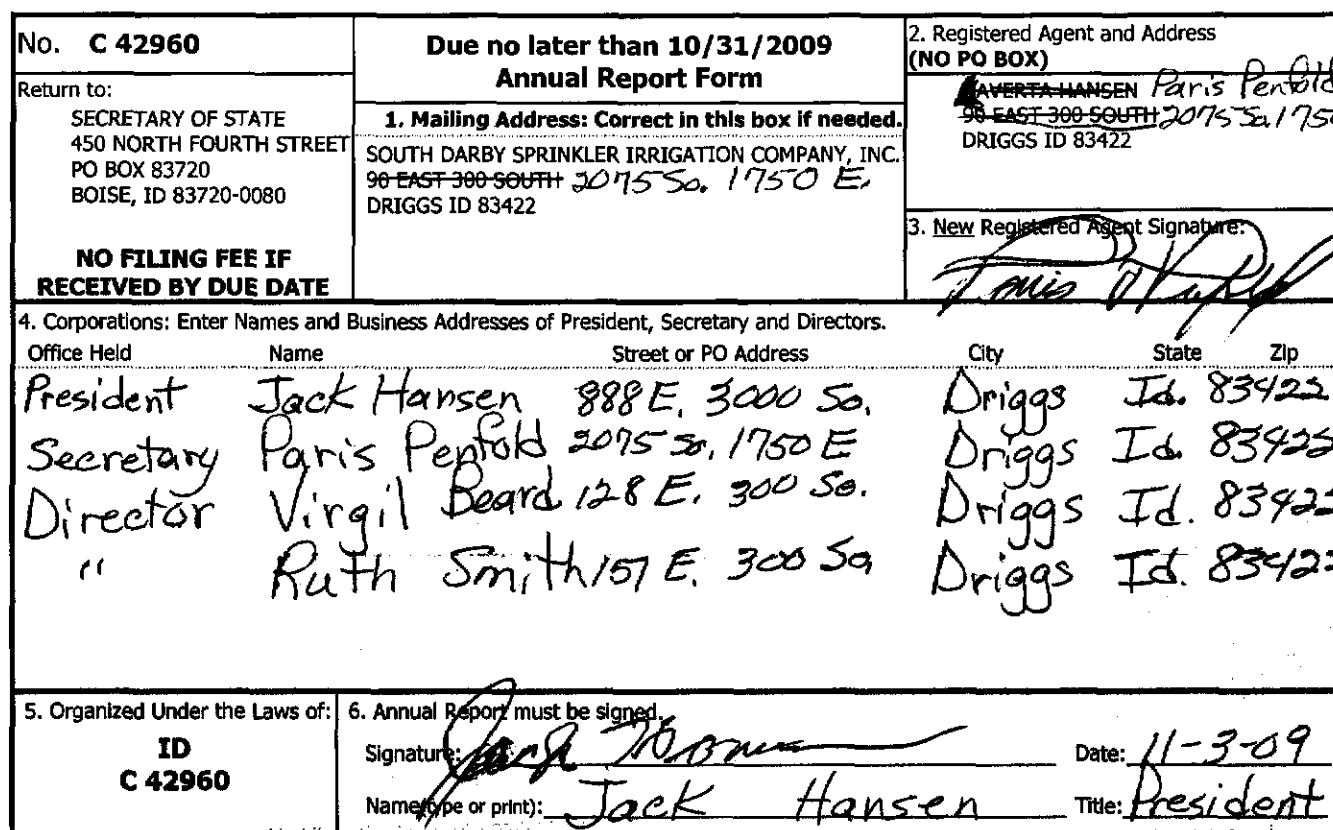 No. C 42960
Return to:
SECRETARY OF STATE
450 NORTH FOURTH STREET
PO BOX 83720
BOISE, ID 83720-0080
NO FILING FEE IF
RECEIVED BY DUE DATE
Due no later than 10/31/2009
Annual Report Form
1. Mailing Address: Correct in this box if needed.
SOUTH DARBY SPRINKLER IRRIGATION COMPANY, INC.
90 EAST 300 SOUTH 2075 So. 1750 E.
DRIGGS ID 83422
2. Registered Agent and Address
(NO PO BOX)
HANSEN Paris Penfold
90 EAST 300 SOUTH 2075 So. 1750
DRIGGS ID 83422
3. New Registered Agent Signature:
Paris Penfold
4. Corporations: Enter Names and Business Addresses of President, Secretary and Directors.
Office Held Name Street or PO Address City State Zip
President Jack Hansen 888 E. 3000 So. Driggs Id. 83422
Secretary Paris Penfold 2075 So. 1750 E Driggs Id. 83422
Director Virgil Beard 128 E. 300 So. Driggs Id. 83422
" Ruth Smith 157 E. 300 So Driggs Id. 83422
5. Organized Under the Laws of:
ID
C 42960
6. Annual Report must be signed.
Signature: Jack Hansen Date: 11-3-09
Name (type or print): Jack Hansen Title: President